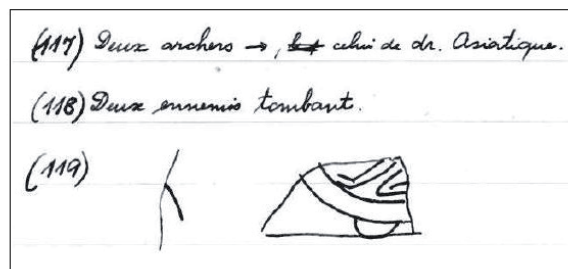 (117) Deux archers →, celui de dr. Asiatique.
(118) Deux ennemis tombant.
(119)